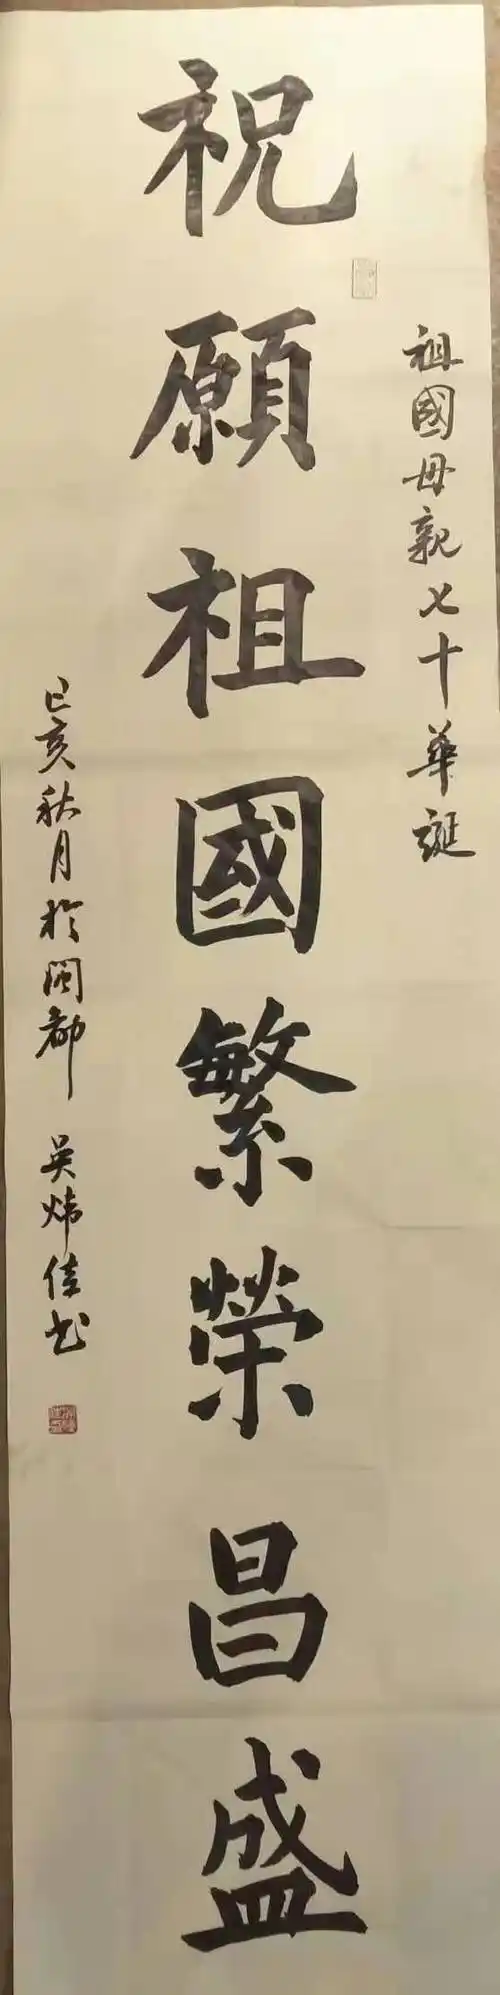 祖國母親七十華誕
祝願祖國繁榮昌盛
己亥秋月於閩都 吴炜佳书